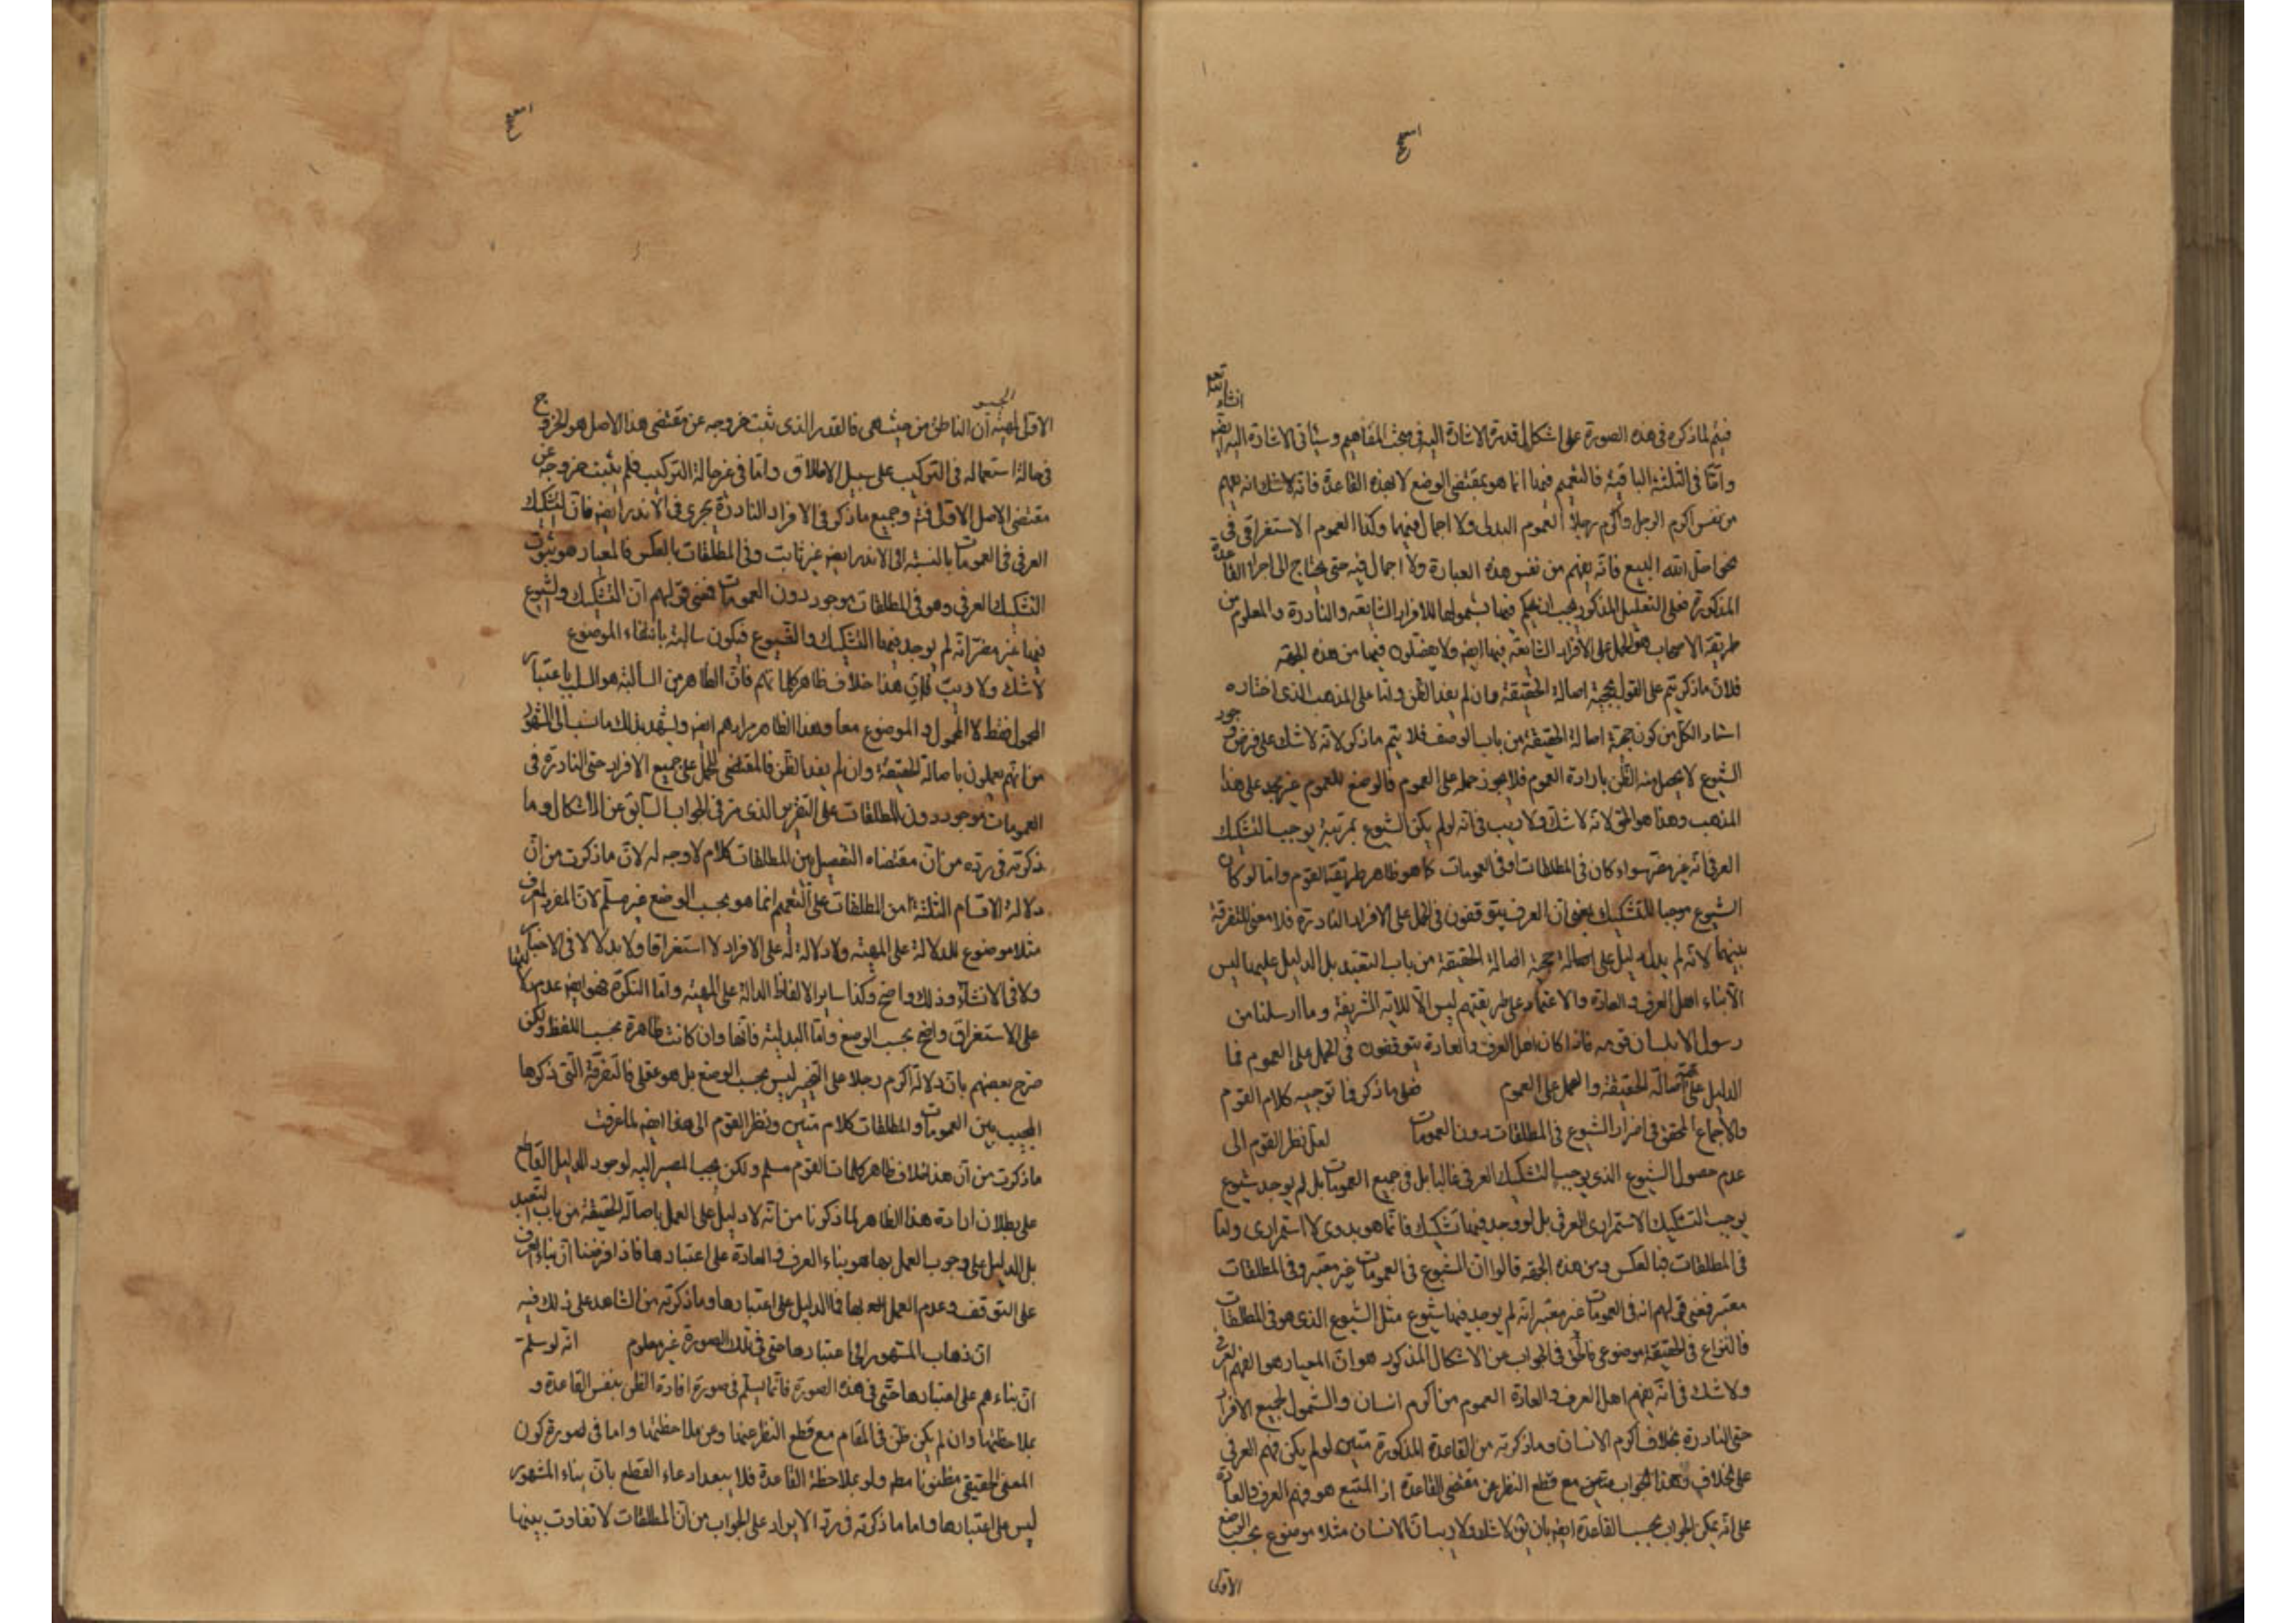 انشاء الله تعم
فيتم لما ذكره في هذه الصورة على اشكال قد مرة الاشارة اليه في مبحث المفاهيم وسيأتي الاشارة اليه ايضه
وامّا في الثلثة الباقية فالتعميم فيها انما هو بمقتضى الوضع لا بهذه القاعدة فانه لا شك انه يفهم
من نفس اكرم الرجل واكرم رجلا العموم البدلى ولا اجمال فيهما وكذا العموم الاستغراقى في
نحو احل الله البيع فانّه يفهم من نفس هذه العبارة ولا اجمال فيه حتى يحتاج الى اجراء القاعدة
المذكورة فعلى التعليل المذكور يجب ان يحكم فيها بشمولها للافراد الشايعة والنادرة والمعلوم من
طريقة الاصحاب هو الحمل على الافراد الشايعة فيها ايضه ولا يفصّلون فيها من هذه الجهة
فلان ما ذكر يتم على القول بحجية اصالة الحقيقة وان لم يفد الظن وامّا على المذهب الذى اختاره
استاد الكل من كون حجية اصالة الحقيقة من باب الوصف فلا يتم ما ذكر لانه لا شك على فرض وجود
الشيوع لا يحصل منه الظن بارادة العموم فلا يجوز حمله على العموم فالوضع للعموم غير مجد على هذا
المذهب وهذا هو الحق لانه لا شك ولا ريب في انه لو لم يكن الشيوع بمرتبة يوجب التشكيك
العرفى انه غير مضر سواء كان في المطلقات او في العمومات كما هو ظاهر طريقة القوم وامّا لو كان
الشيوع موجبا للتشكيك يعنى ان العرف يتوقفون في الحمل على الافراد النادرة فلا معنى للتفرقة
بينهما لانه لم يدل دليل على حجية اصالة الحقيقة من باب التعبد بل الدليل عليها ليس
الا بناء اهل العرف والعادة والاعتماد على طريقتهم ليس الا للاية الشريفة وما ارسلنا من
رسول الا بلسان قومه فاذا كان اهل العرف والعادة يتوقفون في الحمل على العموم فما
الدليل على حجية اصالة الحقيقة والحمل على العموم فعلى ما ذكر فما توجيه كلام القوم
والاجماع المحقق في اضرار الشيوع في المطلقات دون العمومات لعل نظر القوم الى
عدم حصول الشيوع الذى يوجب التشكيك العرفى غالبا بل في جميع العمومات بل لم يوجد شيوع
يوجب التشكيك الاستمرارى العرفى بل لو وجد فيها تشكيك فانما هو بدوى لا استمرارى وامّا
في المطلقات فبالعكس ومن هذه الجهة قالوا ان الشيوع في العمومات غير معتبر وفي المطلقات
معتبر فمعنى قولهم انه في العمومات غير معتبر انه لم يوجد فيها شيوع مثل الشيوع الذى هو في المطلقات
فالنزاع في الحقيقة موضوعى فالحق في الجواب عن الاشكال المذكور هو ان المعيار هو الفهم العرفى
ولا شك في انه يفهم اهل العرف والعادة العموم من اكرم انسان والشمول لجميع الافراد
حتى النادرة بخلاف اكرم الانسان وما ذكرته من القاعدة المذكورة متين لو لم يكن فهم العرفى
على خلافه وهذا الجواب متين مع قطع النظر عن مقتضى القاعدة اذ المتبع هو فهم العرف والعادة
على انه يمكن الجواب بحسب القاعدة ايضه بان يقال لا شك ولا ريب ان الانسان مثلا موضوع بحسب الوضع
الاولى
الاولى لمهية ان الناطق من حيث هى فالقدر الذى ثبت خروجه عن مقتضى هذا الاصل هو الخروج
في حالة استعماله في التركيب على سبيل الاطلاق وامّا في غير حالة التركيب فلم يثبت خروجه عن
مقتضى الاصل الاولى فتم وجميع ما ذكر في الافراد النادرة يجرى في الاندر ايضه فان التشكيك
العرفى في العمومات بالنسبة الى الاندر ايضه غير ثابت وفي المطلقات بالعكس فالمعيار هو ثبوت
التشكيك العرفى وهو في المطلقات موجود دون العمومات فمعنى قولهم ان التشكيك والشيوع
فيها غير مضر انه لم يوجد فيها التشكيك والشيوع فيكون سالبة بانتفاء الموضوع
لا شك ولا ريب في ان هذا خلاف ظاهر كلماتهم فان الظاهر من السالبة هو السلب باعتبار
المحمول فقط لا المحمول والموضوع معا وهذا الظاهر مرادهم ايضه ويشهد بذلك ما نسب الى المشهور
من انهم يعملون باصالة الحقيقة وان لم يفد الظن فالمقتضى للحمل على جميع الافراد حتى النادرة في
العمومات موجود دون المطلقات على التقرير الذى مر في الجواب السابق عن الاشكال وما
ذكرته في رده من ان مقتضاه التفصيل بين المطلقات كلام لا وجه له لان ما ذكرت من ان
دلالة الاقسام الثلثة من المطلقات على التعميم انما هو بحسب الوضع غير مسلم لان المفرد المعرف
مثلا موضوع للدلالة على المهية ولا دلالة له على الافراد لا استغراقا ولا بدلا لا في الاخبار
ولا في الانشاء وذلك واضح وكذا ساير الالفاظ الدالة على المهية وامّا النكرة فهو ايضه عدم دلالتها
على الاستغراق واضح بحسب الوضع وامّا البدلية فانها وان كانت ظاهرة بحسب اللفظ ولكن
صرح بعضهم بان دلالة اكرم رجلا على التخيير ليس بحسب الوضع بل هو عقلى فالتفرقة التى ذكرها
المجيب بين العمومات والمطلقات كلام متين ونظر القوم الى هذا ايضه لما عرفت
ما ذكرت من ان هذا خلاف ظاهر كلمات القوم مسلم ولكن يجب المصير اليه لوجود الدليل القاطع
على بطلان ارادة هذا الظاهر لما ذكرنا من انه لا دليل على العمل باصالة الحقيقة من باب التعبد
بل الدليل على وجوب العمل بها هو بناء العرف والعادة على اعتبارها فاذا فرضنا ان بناء العرف
على التوقف وعدم العمل بها فما الدليل على اعتبارها وما ذكرته من الشاهد على ذلك فيه
ان ذهاب المشهور الى اعتبارها حتى في تلك الصورة غير معلوم انه لو سلمت
ان بناءهم على اعتبارها حتى في هذه الصورة فانما يسلم في صورة افادة الظن بنفس القاعدة و
بملاحظتها وان لم يكن ظن في المقام مع قطع النظر عنها وعن ملاحظتها واما في صورة كون
المعنى الحقيقى مظنونا مط ولو بملاحظة القاعدة فلا يبعد ادعاء القطع بان بناء المشهور
ليس على اعتبارها واما ما ذكرته في رد الايراد على الجواب من ان المطلقات لا تفاوت بينها